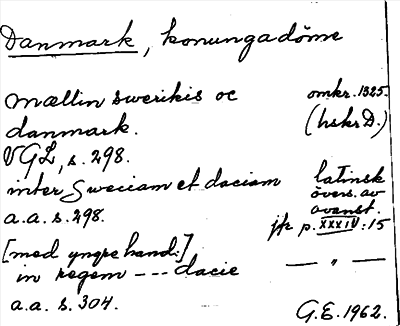 Danmark, konungadöme
mællin swerikis oc omkr. 1325.
danmark. (hskr D.)
VGL, s. 298.
inter Sweciam et daciam latinsk
övers. av
a.a. s. 298. ovanst.
jfr p. XXXIV:15
[med yngre hand:]
in regem --- dacie — " —
a.a. s. 304.
G.E. 1962.